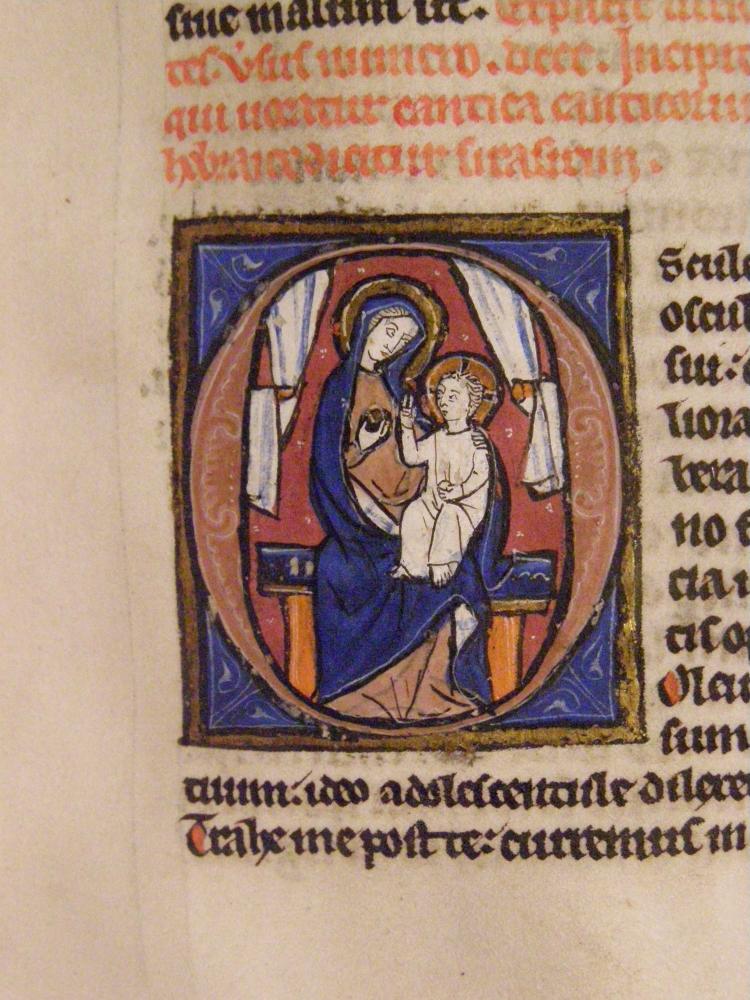 siue malum sit. Explicit
tes. Vsus numero. dccc. Incipit
qui uocatur cantica canticoru
hebraice dicitur sirasirim.
Oscule
oscul
sui:
liora
bera
no
cia
tis op
Oleu
sum
tuum: ideo adolescentule dilexe
Trahe me post te: curremus in